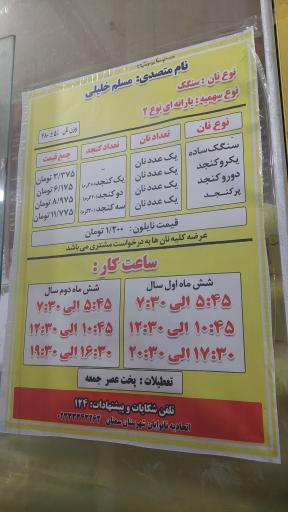 نام متصدی: مسلم خلیلی
نوع نان: سنگک
نوع سهمیه: یارانه ای نوع ۲
وزن نان
نوع نان تعداد نان تعداد کنجد جمع قیمت
سنگک ساده یک عدد نان - ۳/۳۷۵ تومان
یکرو کنجد یک عدد نان یک کنجد ۶/۱۷۵ تومان
دورو کنجد یک عدد نان دو کنجد ۸/۹۷۵ تومان
پرکنجد یک عدد نان سه کنجد ۱۱/۷۷۵ تومان
قیمت نایلون: ۱/۲۰۰ تومان
عرضه کلیه نان ها به درخواست مشتری می باشد
ساعت کار:
شش ماه اول سال
۵:۴۵ الی ۷:۳۰
۱۰:۴۵ الی ۱۳:۳۰
۱۷:۳۰ الی ۲۰:۳۰
شش ماه دوم سال
۵:۴۵ الی ۷:۳۰
۱۰:۴۵ الی ۱۲:۳۰
۱۶:۳۰ الی ۱۹:۳۰
تعطیلات: پخت عصر جمعه
تلفن شکایات و پیشنهادات: ۱۲۴
اتحادیه نانوایان شهرستان سمنان